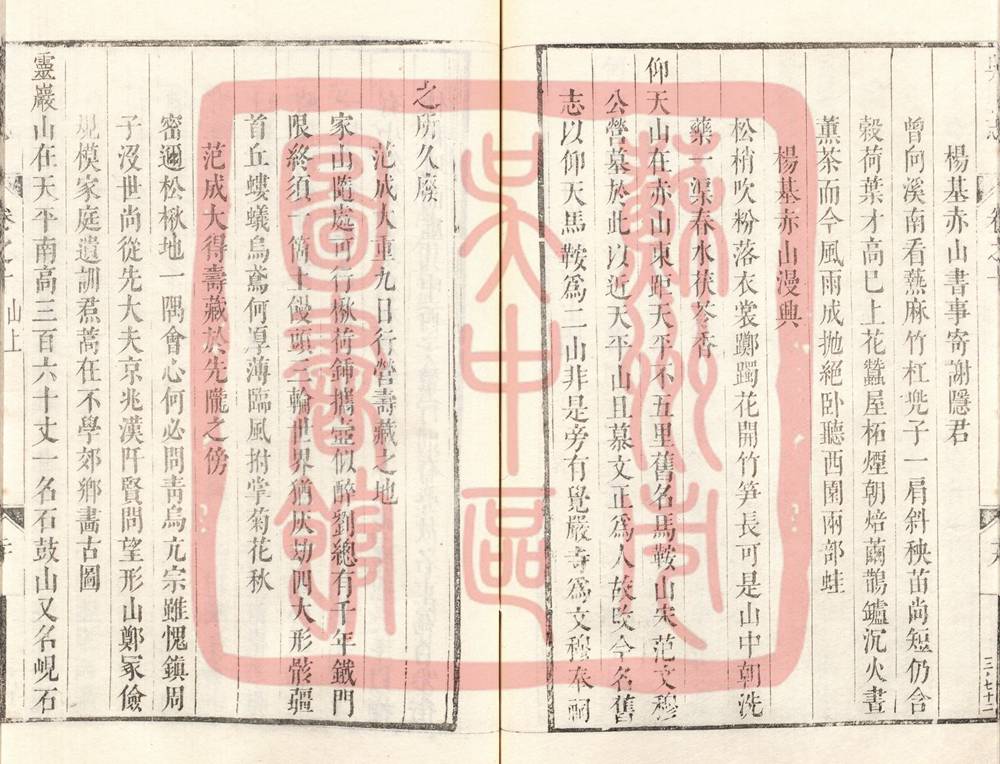 楊基赤山書事寄謝隱君
曾向溪南看蕪麻竹杠兜子一肩斜秧苗尚短仍含
穀荷葉才高巳上花蠶屋柘煙朝焙繭鵲鑪沉火晝
薰茶而今風雨成拋絕卧聽西園兩部蛙
楊基赤山漫興
松梢吹粉落衣裳躑躅花開竹笋長可是山中朝洗
藥一渠春水茯苓香
仰天山在赤山東距天平不五里舊名馬鞍山宋范文穆
公營墓於此以近天平山且慕文正為人故改今名舊
志以仰天馬鞍為二山非是旁有覺嚴寺為文穆奉祠
之所久廢
范成大重九日行營壽藏之地
家山隨處可行楸荷鍤攜壺似醉劉總有千年鐵門
限終須一箇土饅頭三輪世界猶灰劫四大形骸彊
首丘螻蟻烏鳶何厚薄臨風拊掌菊花秋
范成大得壽藏於先隴之傍
密邇松楸地一隅會心何必問青烏亢宗雖愧鎮周
子沒世尚從先大夫京兆漢阡賢問望形山鄭冢儉
規模家庭遺訓焄蒿在不學郊鄉畵古圖
靈巖山在天平南高三百六十丈一名石鼓山又名峴石
卷之
山上
三·七十二
蘇州市
吳中區
圖書館